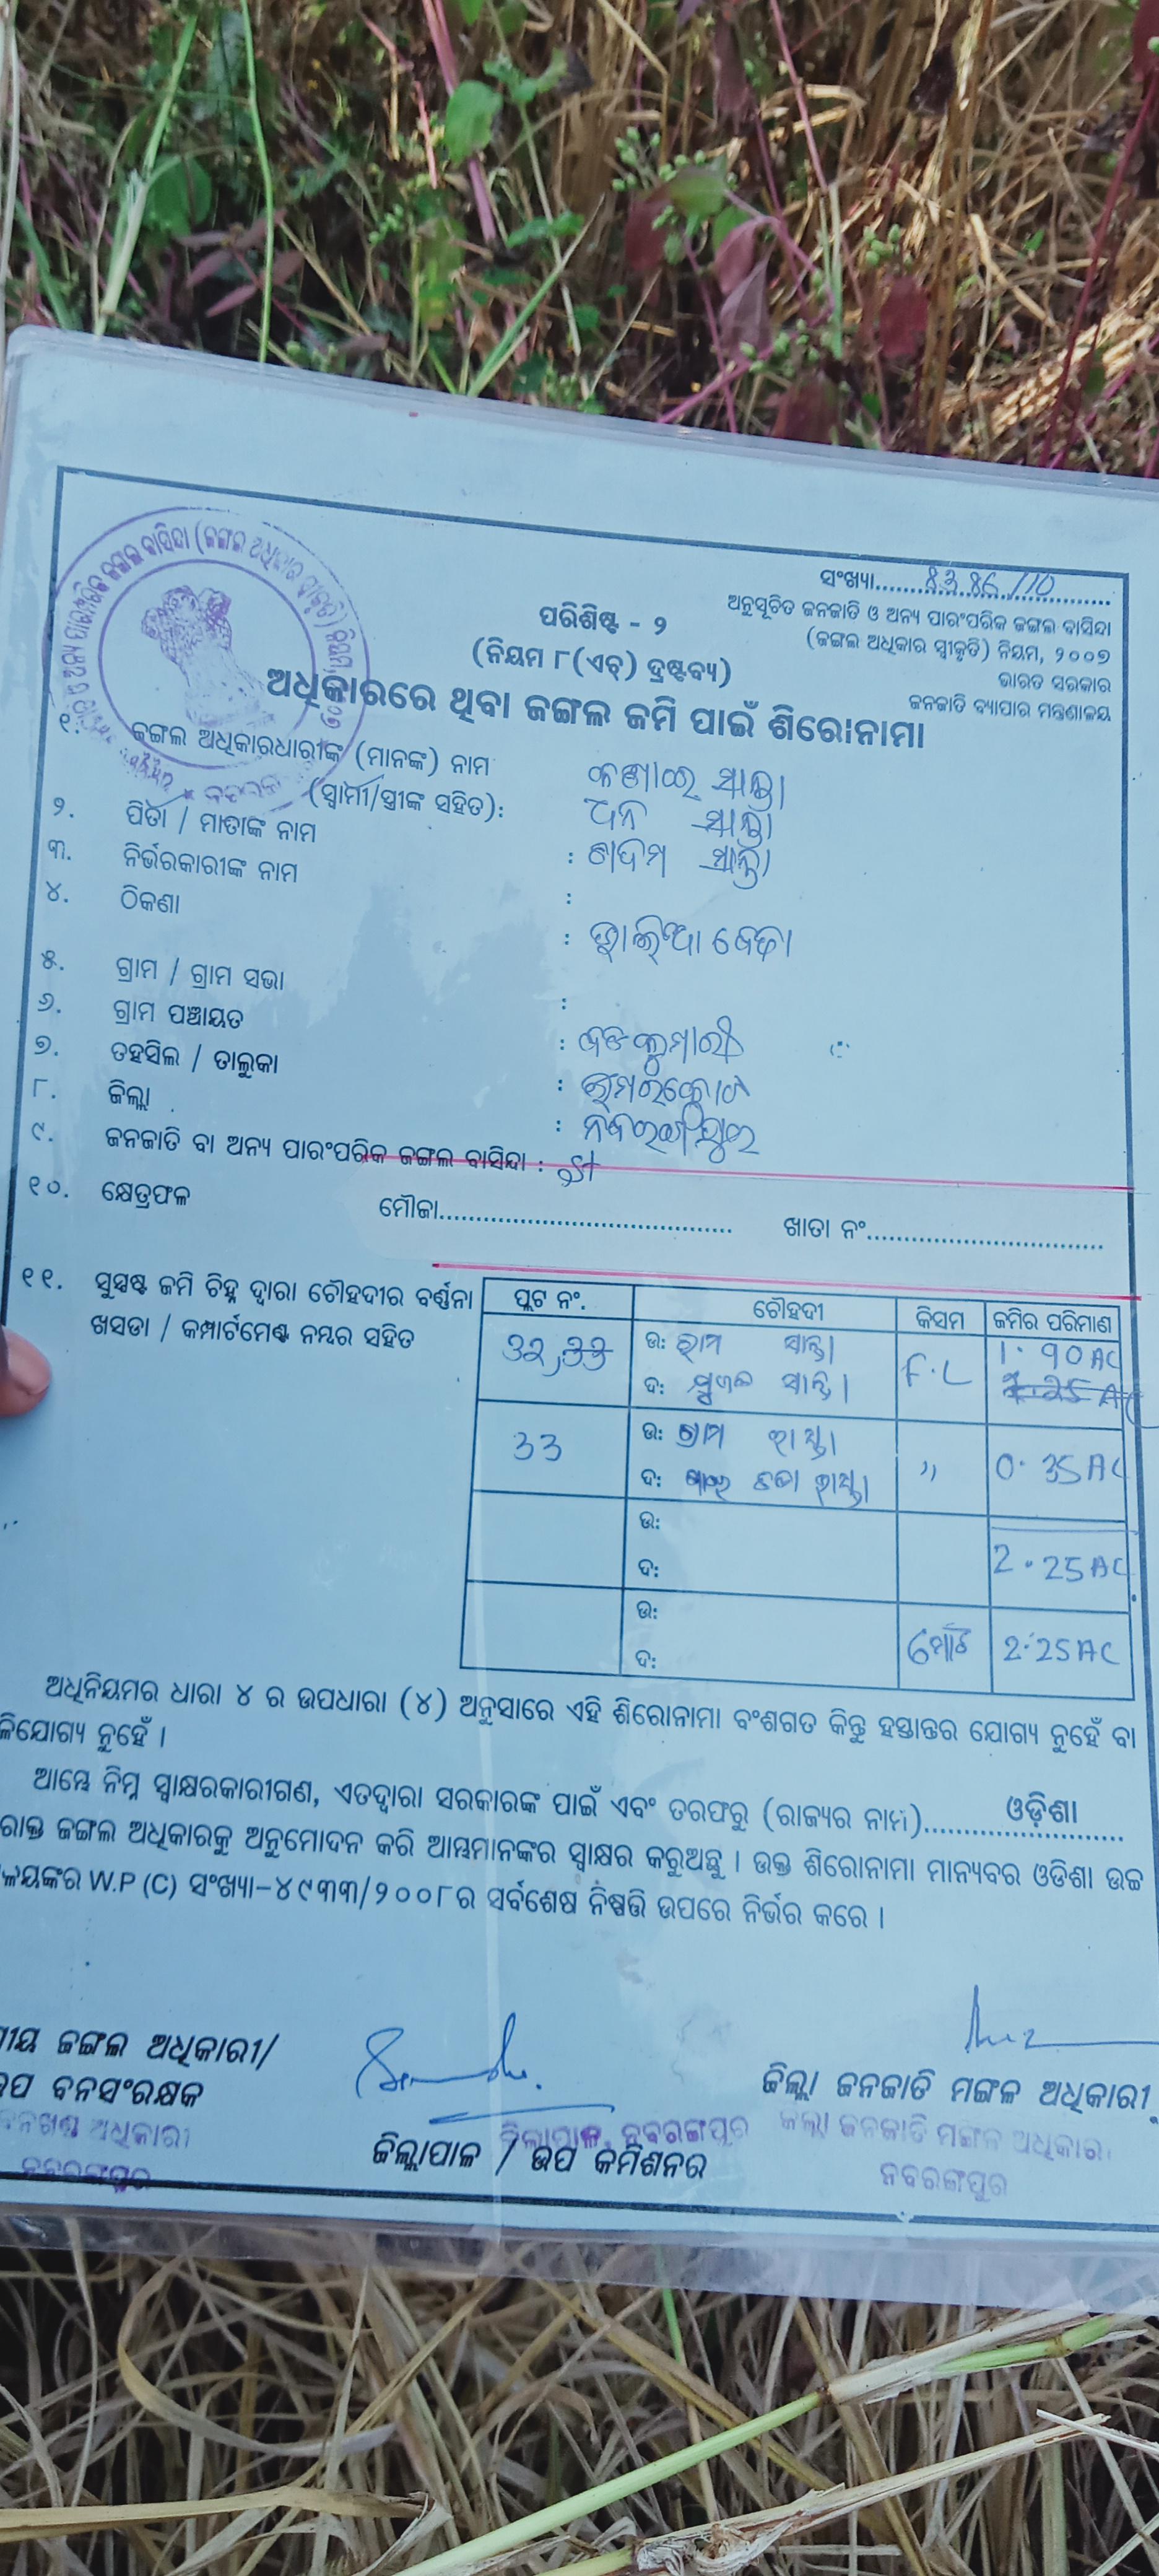 ସଂଖ୍ୟା.........8386/10
ଅନୁସୂଚିତ ଜନଜାତି ଓ ଅନ୍ୟ ପାରଂପରିକ ଜଙ୍ଗଲ ବାସିନ୍ଦା
(ଜଙ୍ଗଲ ଅଧିକାର ସ୍ୱୀକୃତି) ନିୟମ, ୨୦୦୭
ଭାରତ ସରକାର
ଜନଜାତି ବ୍ୟାପାର ମନ୍ତ୍ରଣାଳୟ
ପରିଶିଷ୍ଟ - ୨
(ନିୟମ ୮(ଏଚ୍) ଦ୍ରଷ୍ଟବ୍ୟ)
ଅଧିକାରରେ ଥିବା ଜଙ୍ଗଲ ଜମି ପାଇଁ ଶିରୋନାମା
୧. ଜଙ୍ଗଲ ଅଧିକାରଧାରୀଙ୍କ (ମାନଙ୍କ) ନାମ
(ସ୍ୱାମୀ/ସ୍ତ୍ରୀଙ୍କ ସହିତ): ଧନ ସାନ୍ତା
୨. ପିତା / ମାତାଙ୍କ ନାମ : ସାନ୍ତା
୩. ନିର୍ଭରକାରୀଙ୍କ ନାମ :
୪. ଠିକଣା :
୫. ଗ୍ରାମ / ଗ୍ରାମ ସଭା :
୬. ଗ୍ରାମ ପଞ୍ଚାୟତ : ବଡକୁମାରୀ
୭. ତହସିଲ / ତାଲୁକା : ଉମରକୋଟ
୮. ଜିଲ୍ଲା : ନବରଙ୍ଗପୁର
୯. ଜନଜାତି ବା ଅନ୍ୟ ପାରଂପରିକ ଜଙ୍ଗଲ ବାସିନ୍ଦା : ST
୧୦. କ୍ଷେତ୍ରଫଳ ମୌଜା........................................ ଖାତା ନଂ................................
୧୧. ସୁସ୍ପଷ୍ଟ ଜମି ଚିହ୍ନ ଦ୍ୱାରା ଚୌହଦୀର ବର୍ଣ୍ଣନା
ଖସଡା / କମ୍ପାର୍ଟମେଣ୍ଟ ନମ୍ବର ସହିତ
ପ୍ଲଟ ନଂ. ଚୌହଦୀ କିସମ ଜମିର ପରିମାଣ
32,33 ଉ: ରାମ ସାନ୍ତା F.L 1.90 AC
ଦ: ସାନ୍ତା 2.25 AC
33 ଉ: ଗ୍ରାମ ରାସ୍ତା " 0.35 AC
ଦ: ରାସ୍ତା
ଉ:
ଦ: 2.25 AC
ଉ:
ଦ: ମୋଟ 2.25 AC
ଅଧିନିୟମର ଧାରା ୪ ର ଉପଧାରା (୪) ଅନୁସାରେ ଏହି ଶିରୋନାମା ବଂଶଗତ କିନ୍ତୁ ହସ୍ତାନ୍ତର ଯୋଗ୍ୟ ନୁହେଁ ବା
ଳିଯୋଗ୍ୟ ନୁହେଁ ।
ଆମ୍ଭେ ନିମ୍ନ ସ୍ୱାକ୍ଷରକାରୀଗଣ, ଏତଦ୍ୱାରା ସରକାରଙ୍କ ପାଇଁ ଏବଂ ତରଫରୁ (ରାଜ୍ୟର ନାମ)...........ଓଡ଼ିଶା...........
ରୋକ୍ତ ଜଙ୍ଗଲ ଅଧିକାରକୁ ଅନୁମୋଦନ କରି ଆମ୍ଭମାନଙ୍କର ସ୍ୱାକ୍ଷର କରୁଅଛୁ । ଉକ୍ତ ଶିରୋନାମା ମାନ୍ୟବର ଓଡିଶା ଉଚ୍ଚ
ଳୟଙ୍କର W.P (C) ସଂଖ୍ୟା-୪୯୩୩/୨୦୦୮ର ସର୍ବଶେଷ ନିଷ୍ପତ୍ତି ଉପରେ ନିର୍ଭର କରେ ।
ୀୟ ଜଙ୍ଗଲ ଅଧିକାରୀ/
ଉପ ବନସଂରକ୍ଷକ
ବନଖଣ୍ଡ ଅଧିକାରୀ
ନବରଙ୍ଗପୁର
ଜିଲ୍ଲାପାଳ, ନବରଙ୍ଗପୁର
ଜିଲ୍ଲାପାଳ / ଉପ କମିଶନର
ଜିଲ୍ଲା ଜନଜାତି ମଙ୍ଗଳ ଅଧିକାରୀ
ଜିଲ୍ଲା ଜନଜାତି ମଙ୍ଗଳ ଅଧିକାରୀ
ନବରଙ୍ଗପୁର